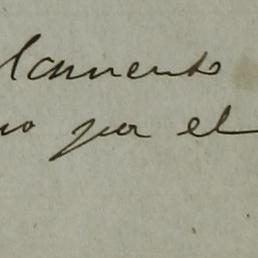 lamento
no por el